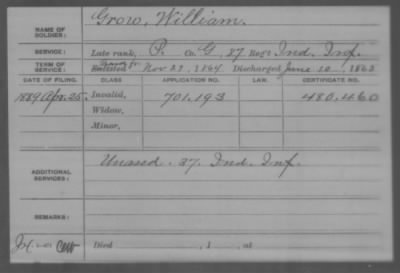 NAME OF SOLDIER: Grow, William.
SERVICE: Late rank, P. Co. G, 87 Reg't Ind. Inf.
TERM OF SERVICE: Enlisted Nov 22, 1864 Discharged June 10, 1865
DATE OF FILING. CLASS. APPLICATION NO. LAW. CERTIFICATE NO.
1889 Apr. 25. Invalid, 701.193 480.460
Widow,
Minor,
ADDITIONAL SERVICES: Unassd. 37. Ind. Inf.
REMARKS:
Died , 1 , at